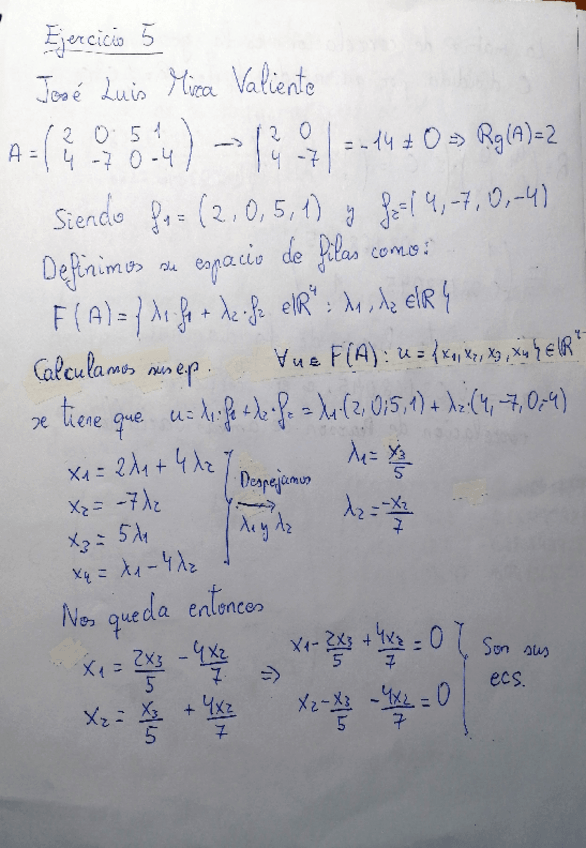 Ejercicio 5
José Luis Mira Valiente
A = ( 2 0 5 1 ; 4 -7 0 -4 ) → | 2 0 ; 4 -7 | = -14 ≠ 0 ⇒ Rg(A)=2
Siendo f₁ = (2, 0, 5, 1) y f₂=(4, -7, 0, -4)
Definimos su espacio de filas como:
F(A) = { λ₁·f₁ + λ₂·f₂ ∈ ℝ⁴ : λ₁, λ₂ ∈ ℝ }
Calculamos sus e.p. ∀u ∈ F(A) : u = {x₁, x₂, x₃, x₄} ∈ ℝ⁴
se tiene que u = λ₁·f₁ + λ₂·f₂ = λ₁·(2, 0, 5, 1) + λ₂·(4, -7, 0, -4)
x₁ = 2λ₁ + 4λ₂
x₂ = -7λ₂
x₃ = 5λ₁
x₄ = λ₁ - 4λ₂
Despejamos
→
λ₁ y λ₂
λ₁ = x₃/5
λ₂ = -x₂/7
Nos queda entonces
x₁ = 2x₃/5 - 4x₂/7 ⇒ x₁ - 2x₃/5 + 4x₂/7 = 0
x₂ = x₃/5 + 4x₂/7 x₂ - x₃/5 - 4x₂/7 = 0
Son sus
ecs.